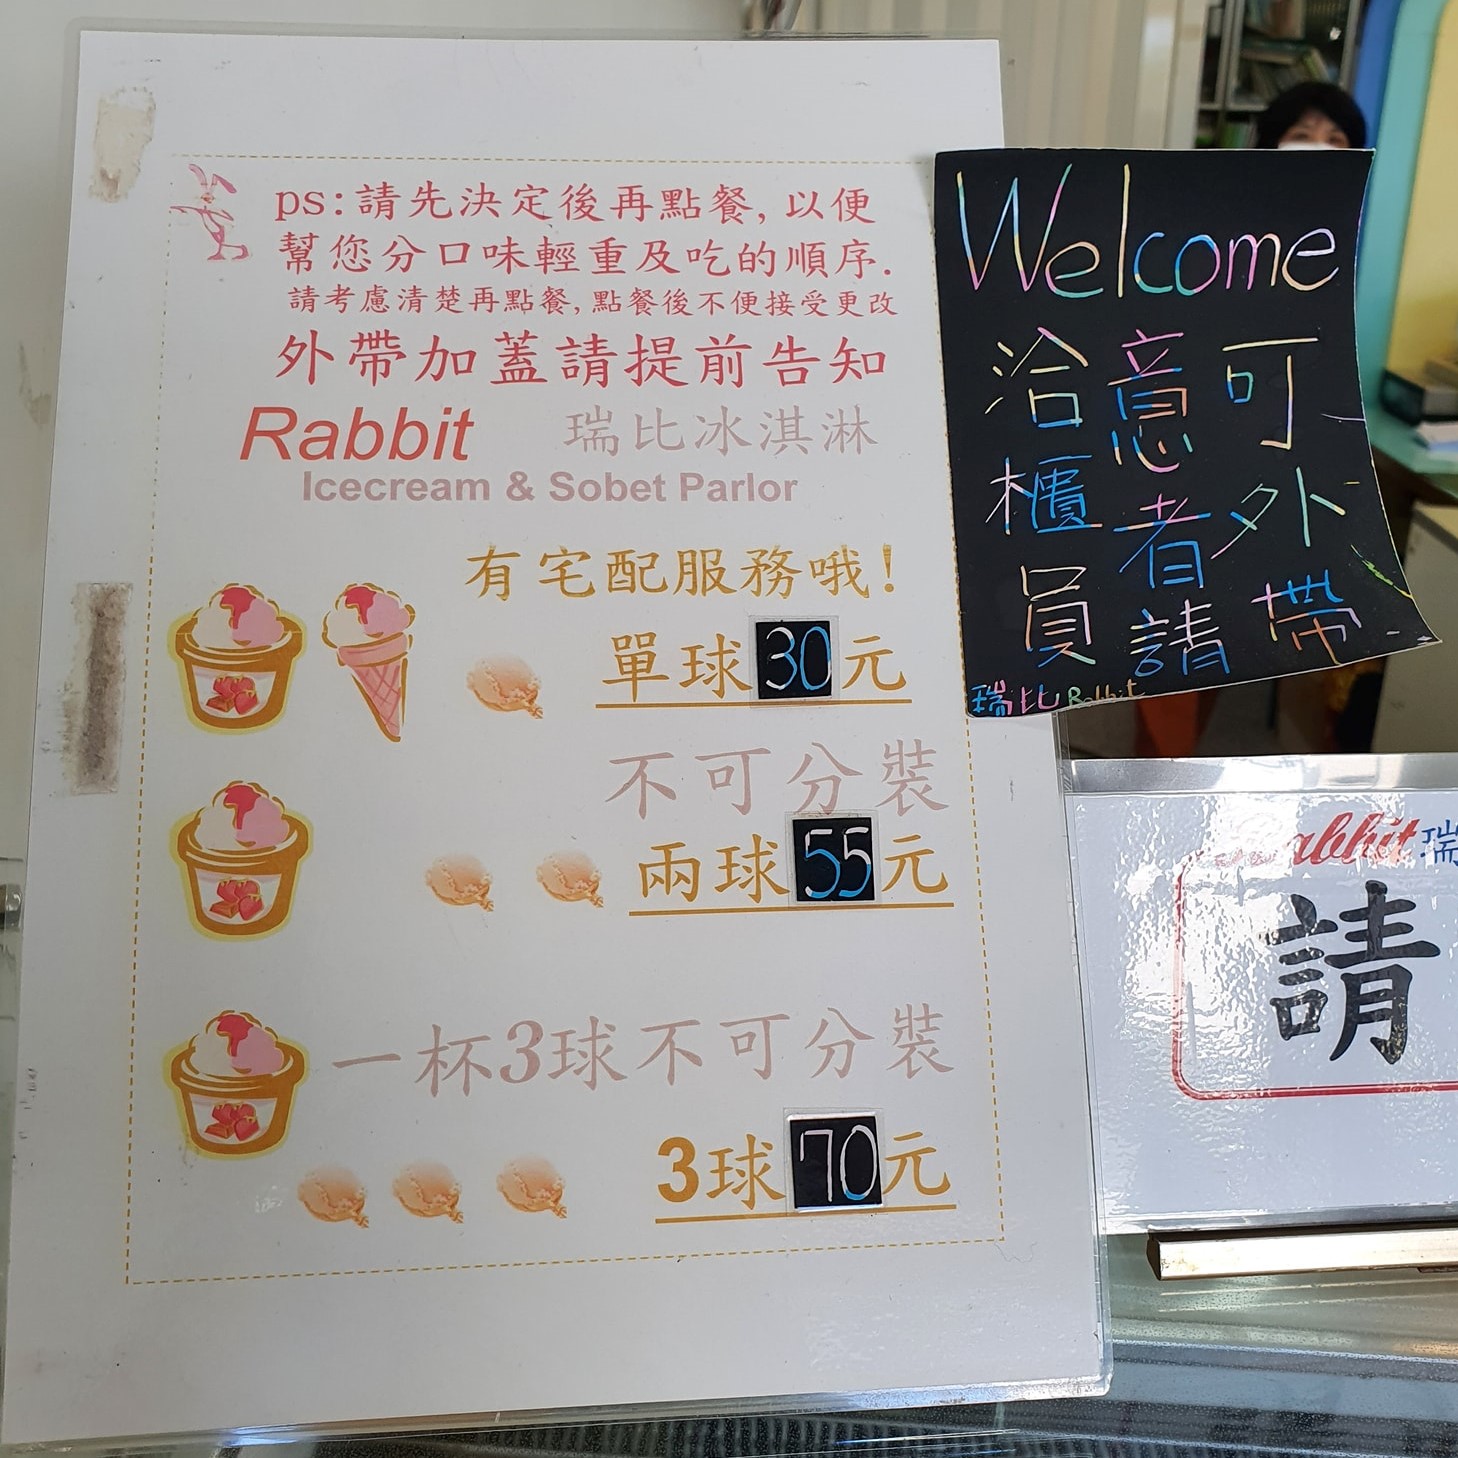 ps:請先決定後再點餐,以便
幫您分口味輕重及吃的順序.
請考慮清楚再點餐,點餐後不便接受更改
外帶加蓋請提前告知
Rabbit 瑞比冰淇淋
Icecream & Sobet Parlor
有宅配服務哦!
單球30元
不可分裝
兩球55元
一杯3球不可分裝
3球70元
Welcome
可外帶
意者請
洽櫃員
瑞比Rabbit
Rabbit瑞
請